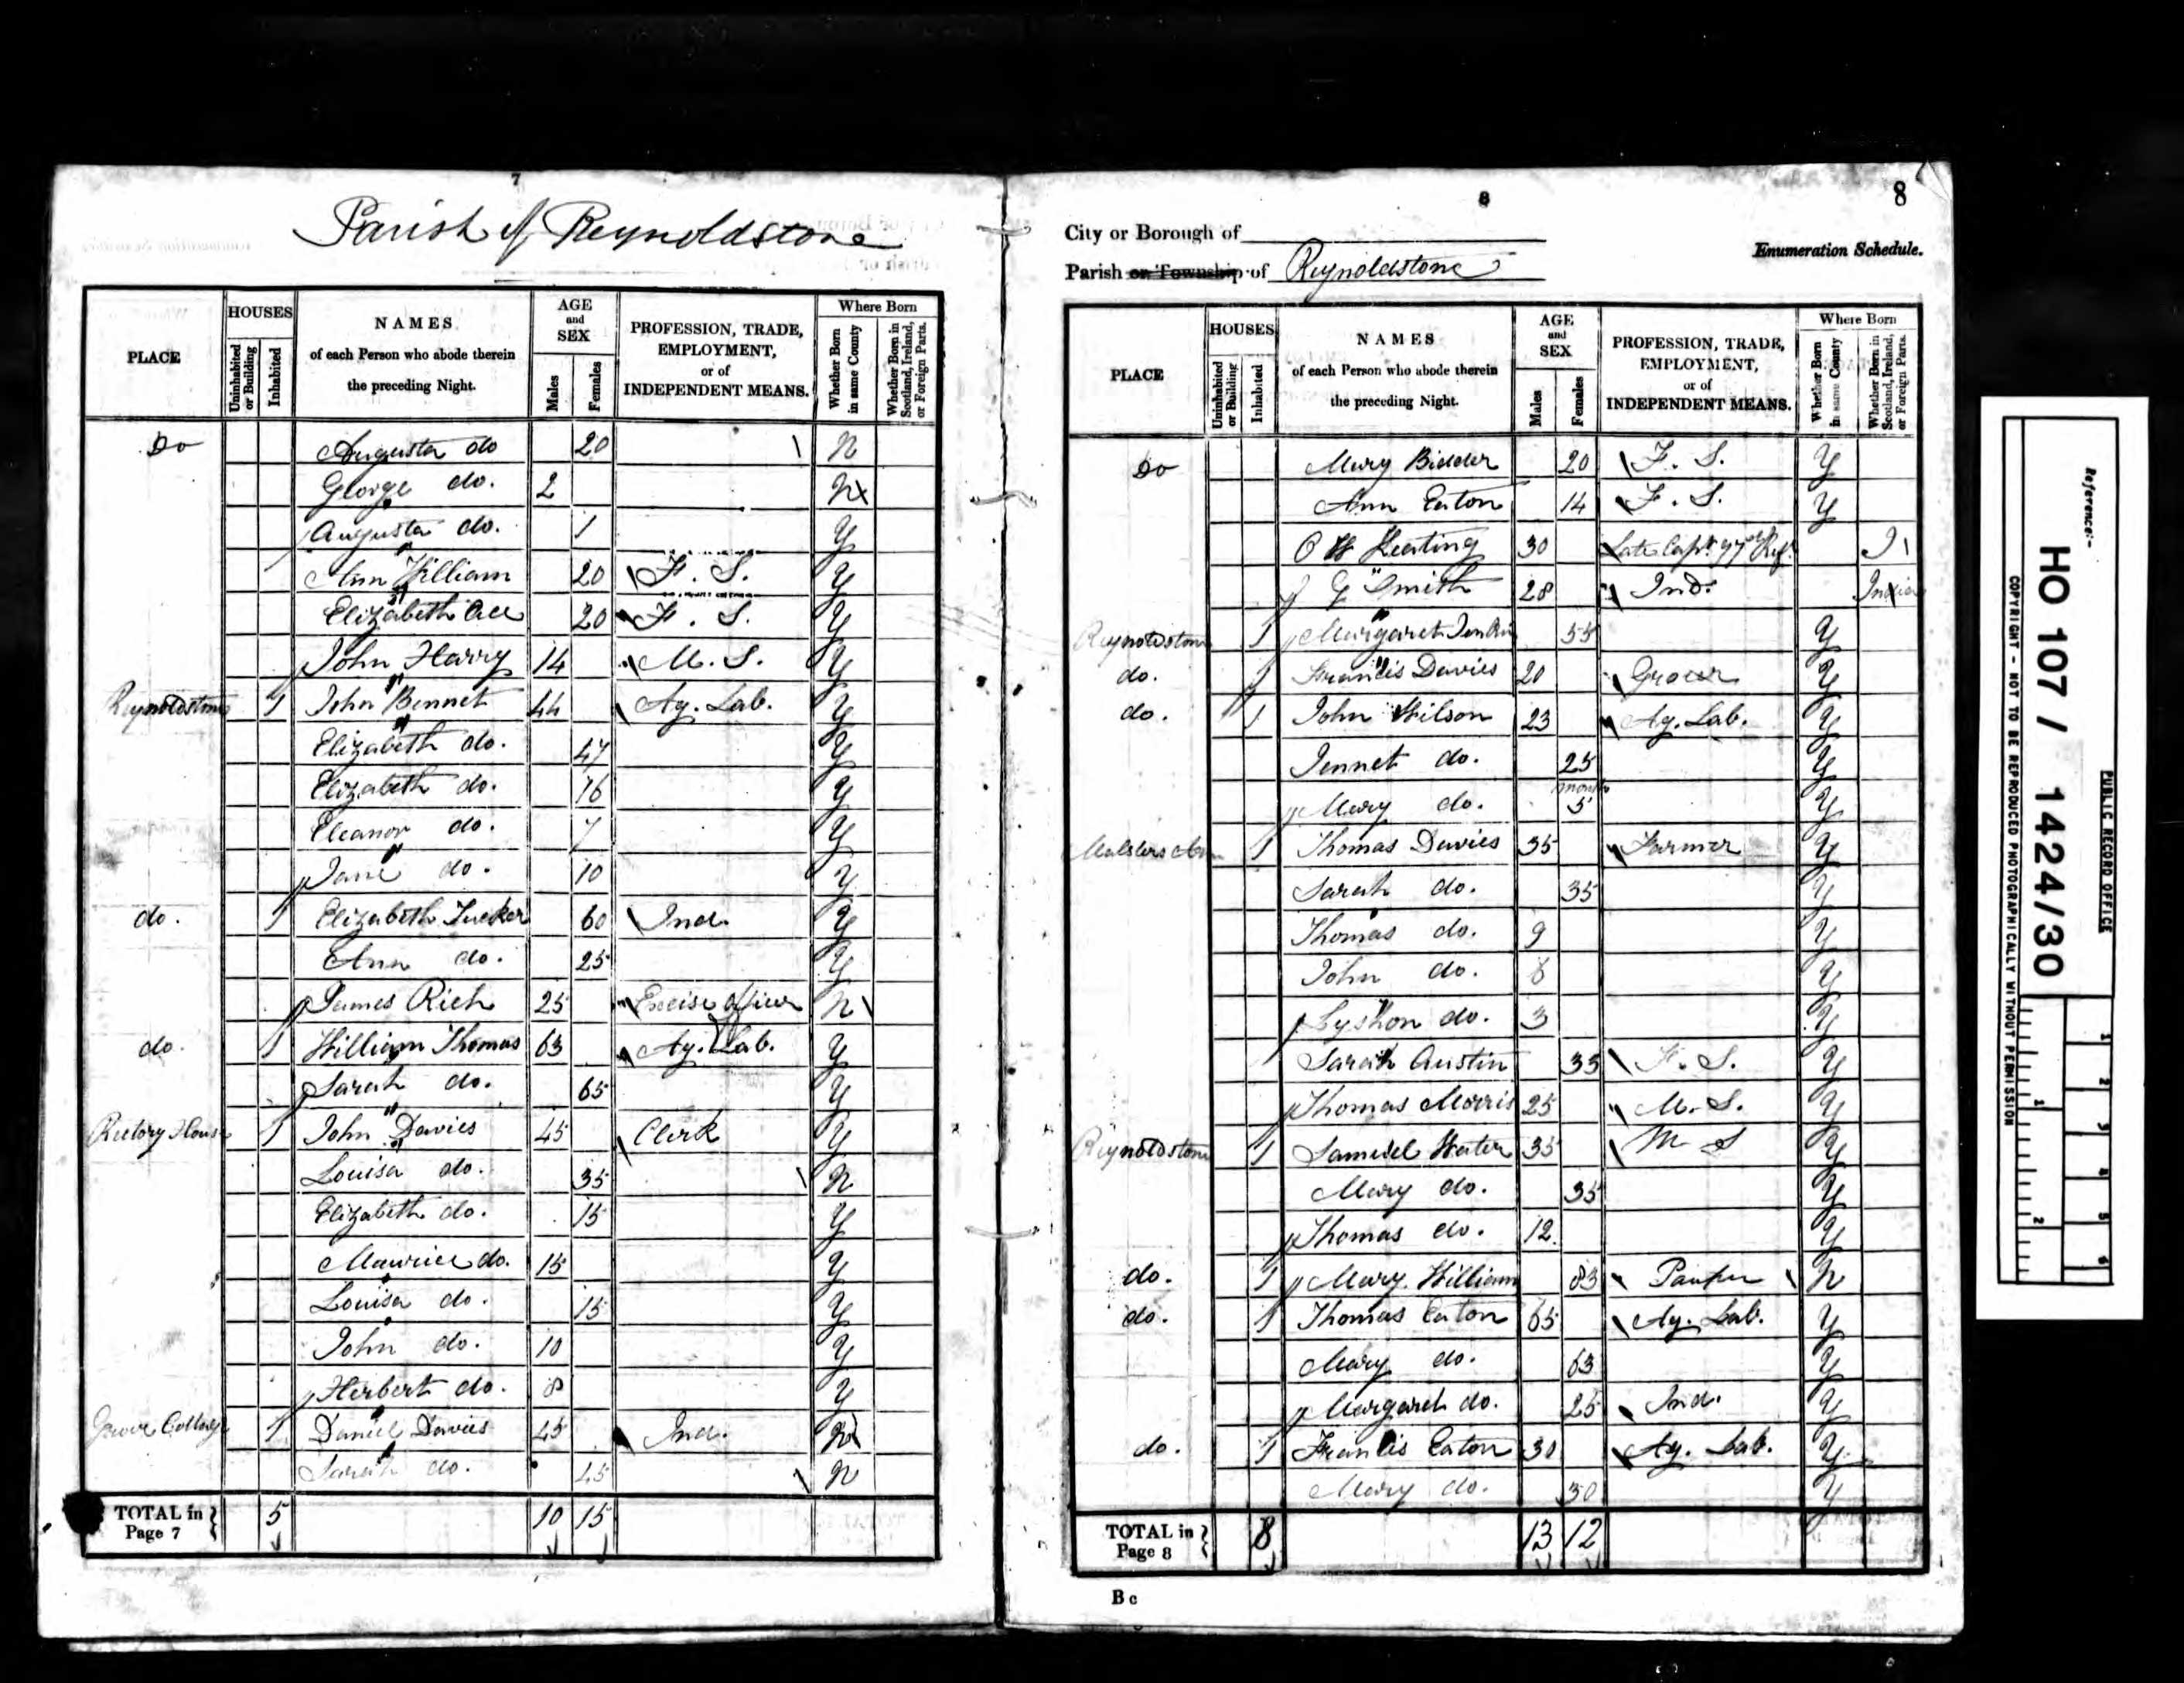 7
Parish of Reynoldstone
PLACE
HOUSES
Uninhabited or Building
Inhabited
NAMES
of each Person who abode therein
the preceding Night.
AGE
and
SEX
Males
Females
PROFESSION, TRADE,
EMPLOYMENT,
or of
INDEPENDENT MEANS.
Where Born
Whether Born in same County
Whether Born in Scotland, Ireland, or Foreign Parts.
Do Augusta do 20 N
George do. 2 N
Augusta do. 1 Y
Ann William 20 F. S. Y
Elizabeth 20 F. S. Y
John Harry 14 M. S. Y
Reynoldstone 1 John Bennet 44 Ag. Lab. Y
Elizabeth do. 47 Y
Elizabeth do. 16 Y
Eleanor do. 7 Y
Jane do. 10 Y
do. 1 Elizabeth Tucker 60 Ind. Y
Ann do. 25 Y
James Rich 25 Excise Officer N
do. 1 William Thomas 63 Ag. Lab. Y
Sarah do. 65 Y
Rectory House 1 John Davies 45 Clerk Y
Louisa do. 35 N
Elizabeth do. 15 Y
Maurice do. 15 Y
Louisa do. 15 Y
John do. 10 Y
Herbert do. 8 Y
Gower Cottage 1 Daniel Davies 45 Ind. N
Sarah do. 45 N
TOTAL in Page 7 5 10 15
8
8
City or Borough of
Enumeration Schedule.
Parish or Township of Reynoldstone
PLACE
HOUSES
Uninhabited or Building
Inhabited
NAMES
of each Person who abode therein
the preceding Night.
AGE
and
SEX
Males
Females
PROFESSION, TRADE,
EMPLOYMENT,
or of
INDEPENDENT MEANS.
Where Born
Whether Born in same County
Whether Born in Scotland, Ireland, or Foreign Parts.
Do Mary Bidder 20 F. S. Y
Ann Eaton 14 F. S. Y
O W Keating 30 Late Capt. Regt I
J G Smith 28 Ind. India
Reynoldstone 1 Margaret Jenkin 55 Y
do. 1 Francis Davies 20 Grocer Y
do. 1 John Wilson 23 Ag. Lab. Y
Jennet do. 25 Y
Mary do. 5 months Y
Malsters 1 Thomas Davies 35 Farmer Y
Sarah do. 35 Y
Thomas do. 9 Y
John do. Y
Lyshon do. 3 Y
Sarah Austin 35 F. S. Y
Thomas Morris 25 M. S. Y
Reynoldstone 1 Samuel Water 35 M S Y
Mary do. 35 Y
Thomas do. 12 Y
do. 1 Mary William 83 Pauper N
do. 1 Thomas Eaton 65 Ag. Lab. Y
Mary do. 63 Y
Margaret do. 25 Ind. Y
do. 1 Francis Eaton 30 Ag. Lab. Y
Mary do. 30 Y
TOTAL in Page 8 8 13 12
Bc
Reference:-
HO 107 / 1424/30
PUBLIC RECORD OFFICE
COPYRIGHT - NOT TO BE REPRODUCED PHOTOGRAPHICALLY WITHOUT PERMISSION
1
2
1
2
3
4
5
6